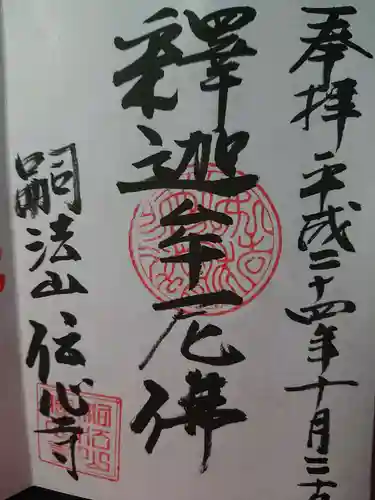 奉拝 平成二十四年十月三十
釋迦牟尼佛
嗣法山 伝心寺